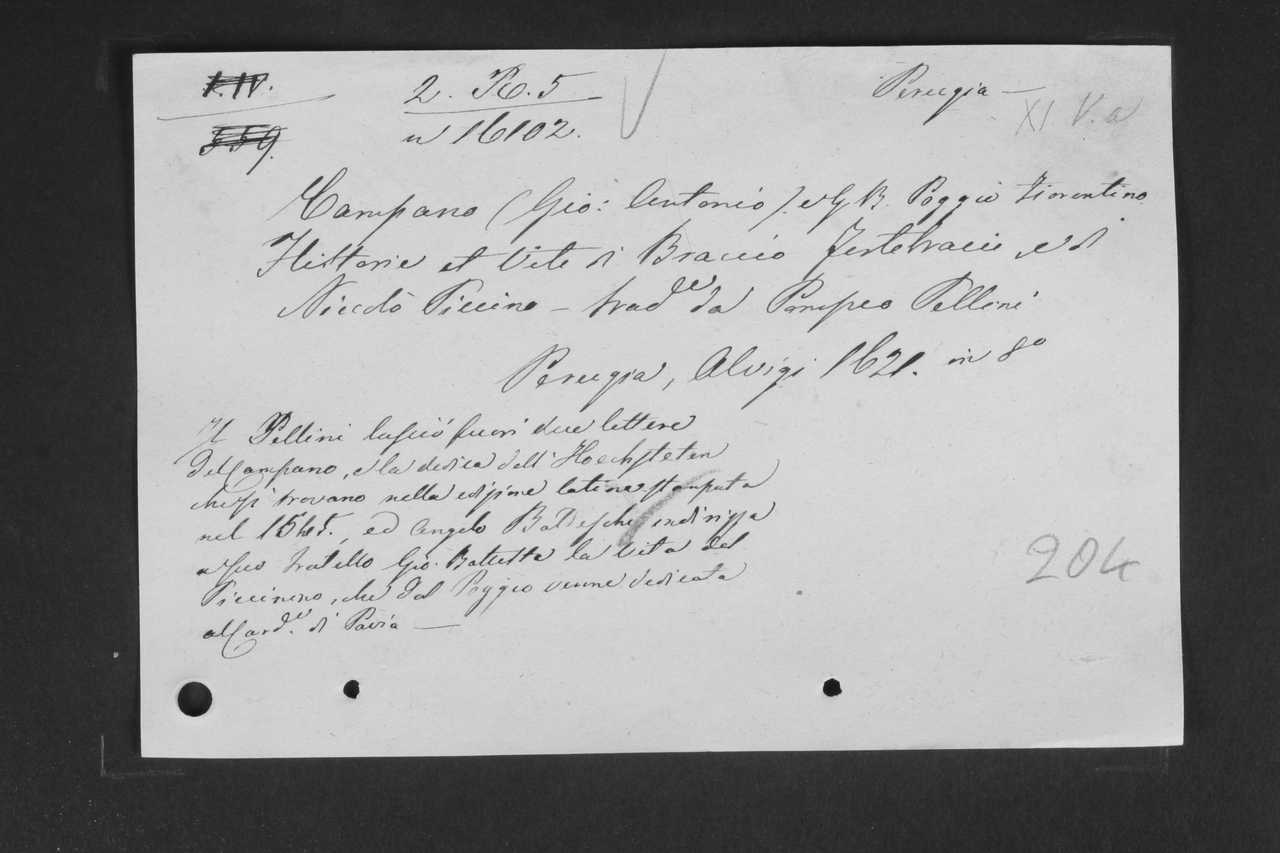 1.IV.
559.
2. R. 5
n 16102.
Perugia —
XI V. a
Campano (Gio: Antonio) e G. B. Poggio Fiorentino
Historie et Vite di Braccio Fortebracci, e di
Niccolò Piccino — trad.e da Pompeo Pellini
Perugia, Aluigi 1621. in 8o
Il Pellini lasciò fuori due lettere
del Campano, e la dedica dell' Hoechsteten
che si trovano nella edizione latina stampata
nel 1545, ed Angelo Baldeschi indirizza
a suo fratello Gio. Battista la Vita del
Piccinino, che dal Poggio venne dedicata
al Card.e di Pavia —
204